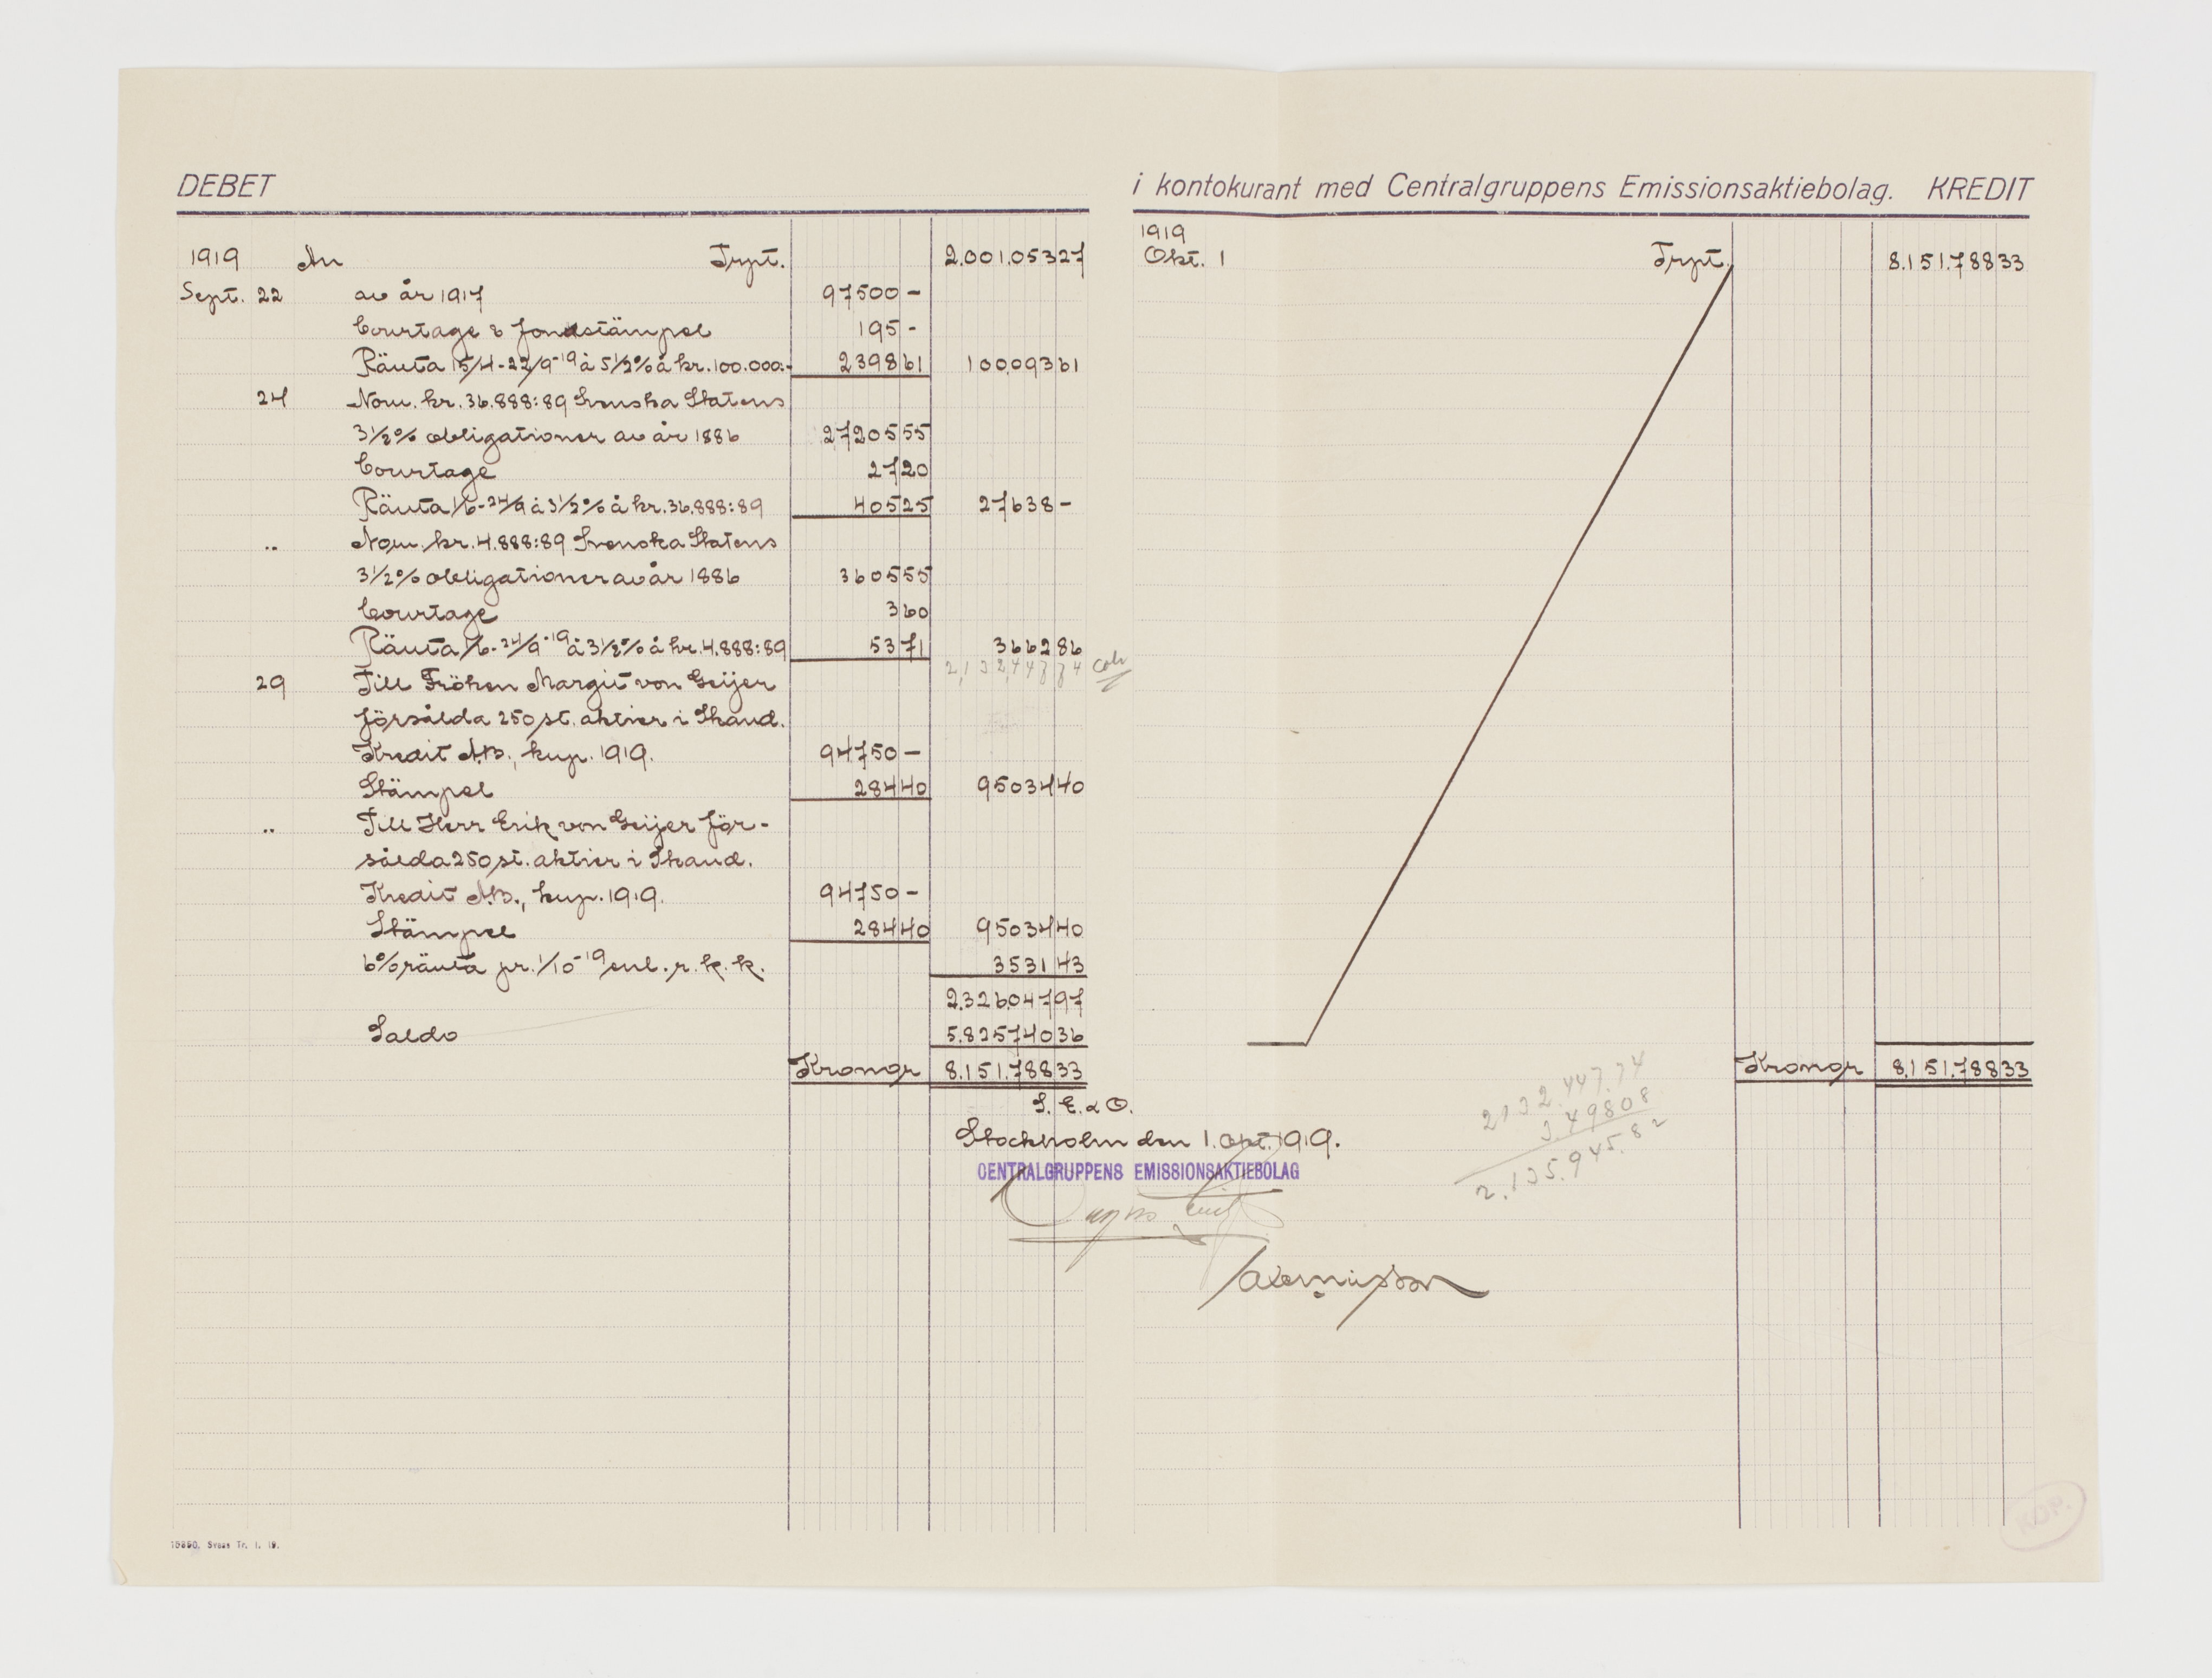 DEBET
1919 An Trpt. 2.001.053 27
Sept. 22 av år 1917 97500 -
Courtage & fondstämpel 195 -
Ränta 15/4-22/9-19 à 5½% å kr. 100.000:- 2398 61 100.093 61
24 Nom. kr. 36.888:89 Svenska Statens
3½% obligationer av år 1886 27205 55
Courtage 27 20
Ränta 1/6-24/9 à 3½% å kr. 36.888:89 405 25 27638 -
" Nom. kr. 4.888:89 Svenska Statens
3½% obligationer av år 1886 3605 55
Courtage 3 60
Ränta 1/6-24/9-19 à 3½% å kr. 4.888:89 53 71 3662 86
2,132,447 74
29 Till Fröken Margit von Geijer
försålda 250 st. aktier i Skand.
Kredit A.B., kup. 1919. 94750 -
Stämpel 284 40 95034 40
" Till Herr Erik von Geijer för-
sålda 250 st. aktier i Skand.
Kredit A.B., kup. 1919. 94750 -
Stämpel 284 40 95034 40
6% ränta pr. 1/10-19 enl. r. k. k. 3531 43
2.326.047 97
Saldo 5.825.740 36
Kronor 8.151.788 33
S. E. & O.
Stockholm den 1. Okt. 1919.
CENTRALGRUPPENS EMISSIONSAKTIEBOLAG
15850. Svens Tr. 1. 19.
i kontokurant med Centralgruppens Emissionsaktiebolag. KREDIT
1919
Okt. 1 Trpt. 8.151.788 33
Kronor 8.151.788 33
2132.447.74
3.49808
2.135.945.82
KOP.